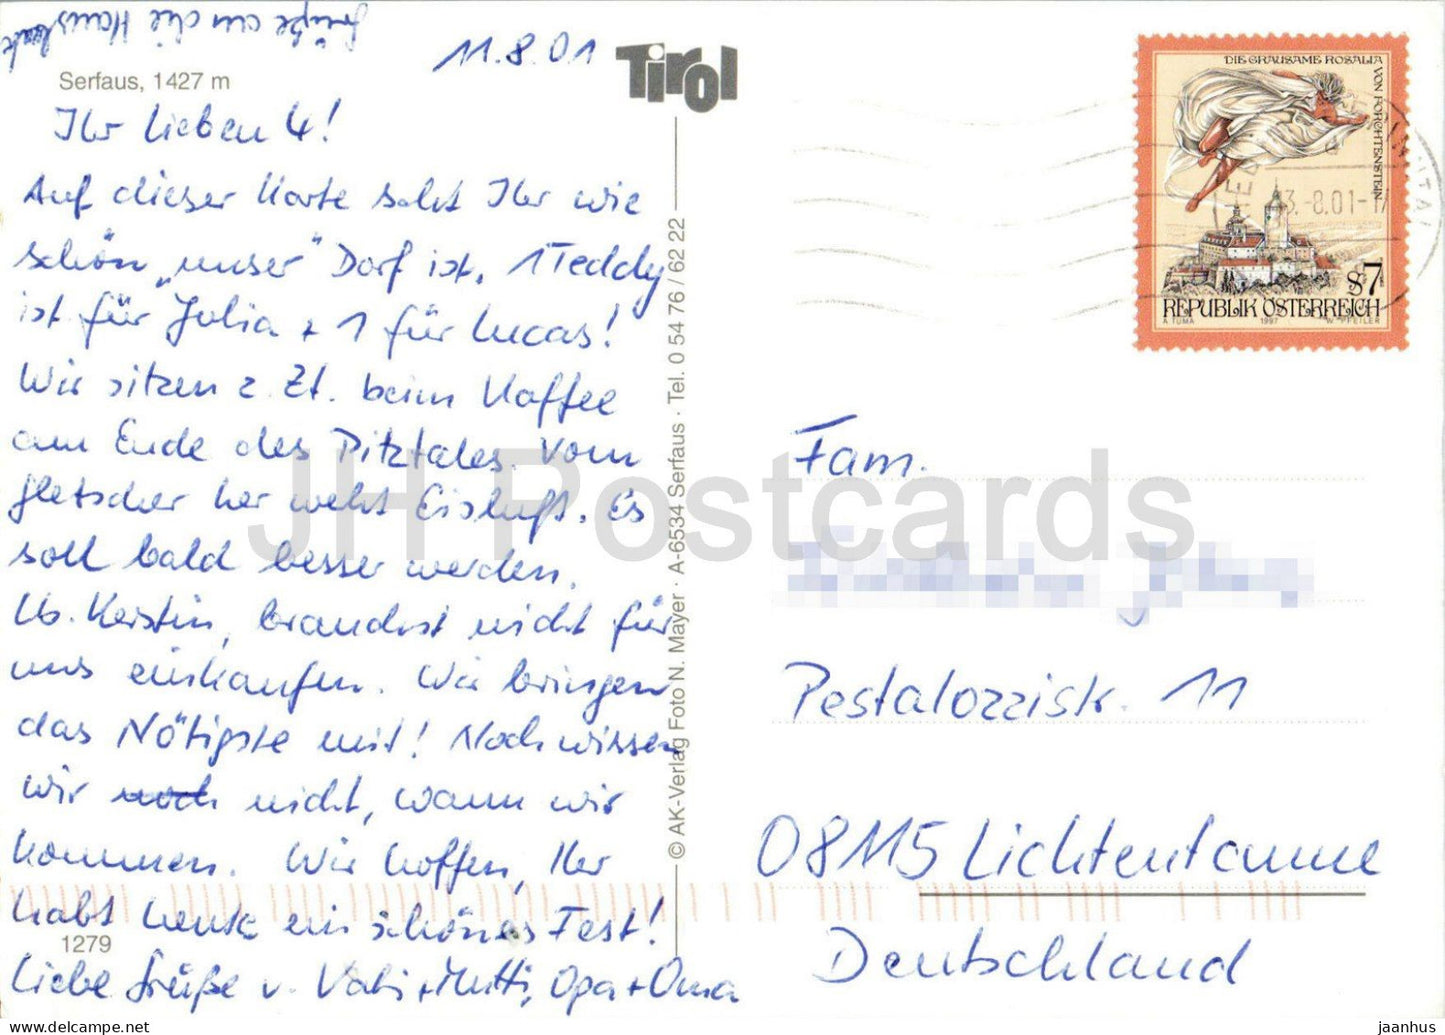 Grüße an die Hausleute
11.8.01
Tirol
Serfaus, 1427 m
Ihr lieben 4!
Auf dieser Karte seht Ihr wie
schön „unser" Dorf ist. 1 Teddy
ist für Julia + 1 für Lucas!
Wir sitzen z. Zt. beim Kaffee
am Ende des Pitztales. Vom
Gletscher her weht Eisluft. Es
soll bald besser werden.
Lb. Kerstin, brauchst nicht für
uns einkaufen. Wir bringen
das Nötigste mit! Noch wissen
wir noch nicht, wann wir
kommen. Wir hoffen, Ihr
habt heute ein schönes Fest!
1279
Liebe Grüße v. Vati + Mutti, Opa + Oma
© AK-Verlag Foto N. Mayer · A-6534 Serfaus · Tel. 0 54 76 / 62 22
DIE GRAUSAME ROSALIA VON FORCHTENSTEIN
3.-8.01-17
S7
REPUBLIK ÖSTERREICH
A. TUMA 1997 W. PFEILER
Fam.
Pestalozzistr. 11
08115 Lichtentanne
Deutschland
JH Postcards
delcampe.net
jaanhus